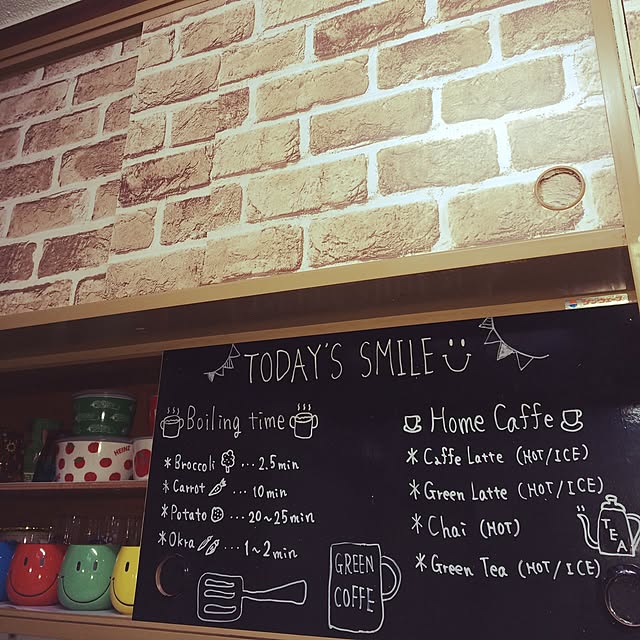 TODAY'S SMILE
Boiling time
*Broccoli ... 2.5min
*Carrot ... 10min
*Potato ... 20~25min
*Okra ... 1~2min
Home Caffe
*Caffe Latte (HOT/ICE)
*Green Latte (HOT/ICE)
*Chai (HOT)
*Green Tea (HOT/ICE)
GREEN
COFFE
TEA
HEINZ